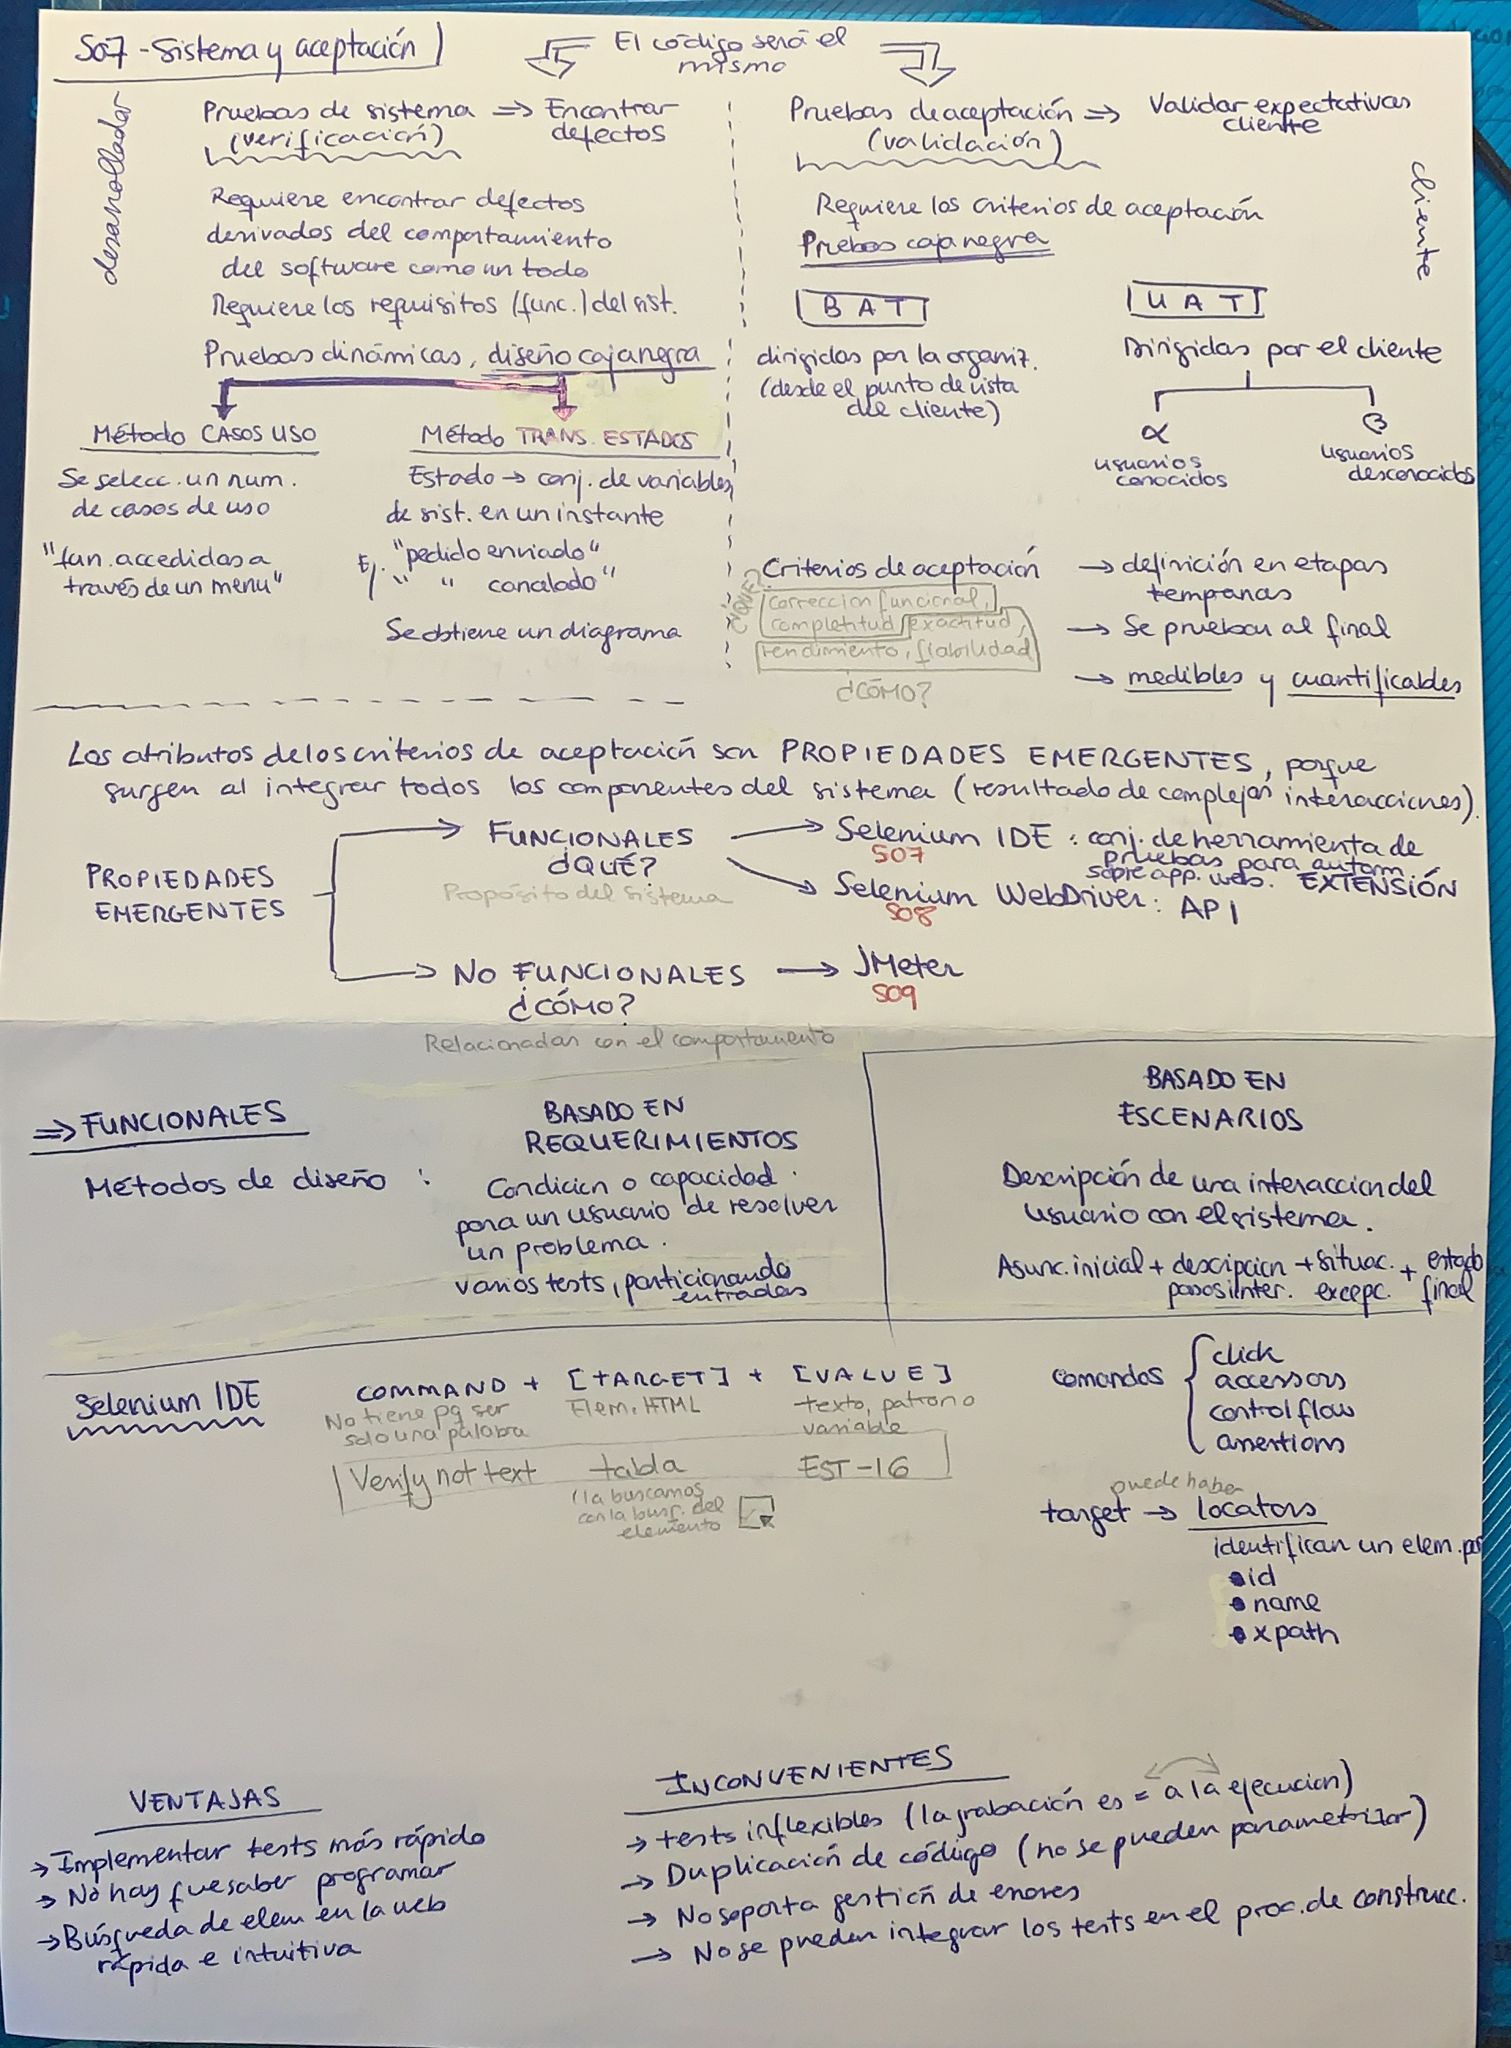 S07 - Sistema y aceptación
El código será el
mismo
desarrollador
Pruebas de sistema => Encontrar
(verificación) defectos
Requiere encontrar defectos
derivados del comportamiento
del software como un todo
Requiere los requisitos (func.) del sist.
Pruebas dinámicas, diseño caja negra
Método CASOS USO
Se selecc. un num.
de casos de uso
"fun. accedidas a
través de un menu"
Método TRANS. ESTADOS
Estado → conj. de variables
de sist. en un instante
Ej. "pedido enviado"
" " cancelado"
Se obtiene un diagrama
Pruebas de aceptación => Validar expectativas
(validación) cliente
cliente
Requiere los criterios de aceptación
Pruebas caja negra
BAT
dirigidas por la organiz.
(desde el punto de vista
del cliente)
UAT
Dirigidas por el cliente
α
usuarios
conocidos
β
usuarios
desconocidos
Criterios de aceptación
¿QUÉ?
corrección funcional,
completitud exactitud,
rendimiento, fiabilidad
¿CÓMO?
→ definición en etapas
tempranas
→ Se prueban al final
→ medibles y cuantificables
Los atributos de los criterios de aceptación son PROPIEDADES EMERGENTES, porque
surgen al integrar todos los componentes del sistema (resultado de complejas interacciones).
PROPIEDADES
EMERGENTES
→ FUNCIONALES
¿QUÉ?
Propósito del sistema
→ Selenium IDE : conj. de herramienta de
S07 pruebas para autom
sobre app. web. EXTENSIÓN
→ Selenium WebDriver : API
S08
→ NO FUNCIONALES → JMeter
¿CÓMO? S09
Relacionadas con el comportamiento
=> FUNCIONALES
Métodos de diseño :
BASADO EN
REQUERIMIENTOS
Condición o capacidad
para un usuario de resolver
un problema.
varios tests, particionando
entradas
BASADO EN
ESCENARIOS
Descripción de una interacción del
usuario con el sistema.
Asunc. inicial + descripción + situac. + estado
pasos inter. excepc. final
Selenium IDE
COMMAND + [TARGET] + [VALUE]
No tiene pq ser Elem. HTML texto, patrón o
solo una palabra variable
Verify not text tabla EST-16
(la buscamos
con la busq. del
elemento
comandos
click
accessors
control flow
assertions
puede haber
target → locators
identifican un elem. por
• id
• name
• xpath
VENTAJAS
→ Implementar tests más rápido
→ No hay que saber programar
→ Búsqueda de elem en la web
rápida e intuitiva
INCONVENIENTES
→ tests inflexibles (la grabación es = a la ejecución)
→ Duplicación de código (no se pueden parametrizar)
→ No soporta gestión de errores
→ No se pueden integrar los tests en el proc. de construcc.